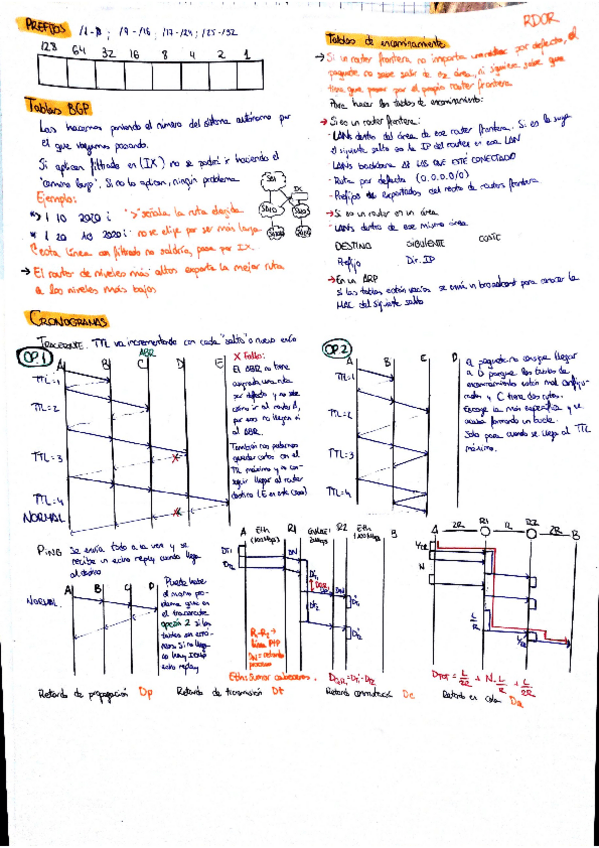 RDOR
PREFIJOS /1-8 ; /9-/16 ; /17-/24 ; /25-/32
128 64 32 16 8 4 2 1
Tablas BGP
Las hacemos poniendo el número del sistema autónomo por
el que vayamos pasando.
Si aplican filtrado en (IX) no se podrá ir haciendo el
"camino largo". Si no lo aplican, ningún problema
Ejemplo:
*> 1 10 2020 i ">" señala la ruta elegida
* 1 20 10 2020 i no se elige por ser más larga
esta línea con filtrado no saldría, pasa por IX.
→ El router de niveles más altos exporta la mejor ruta
a los niveles más bajos
IX
Tablas de encaminamiento
→ Si un router frontera no importa una ruta por defecto, el
paquete no sabe salir de su área, ni siquiera sabe que
tiene que pasar por el propio router frontera
Para hacer las tablas de encaminamiento:
→ Si es un router frontera:
- LANs dentro del área de ese router frontera. Si es la suya
el siguiente salto es la IP del router en esa LAN
- LANs backbone A LAS QUE ESTÉ CONECTADO
- Ruta por defecto (0.0.0.0/0)
- Prefijos exportados del resto de routers frontera
→ Si es un router en un área
- LANs dentro de ese mismo área
DESTINO SIGUIENTE COSTE
Prefijo Dir. IP
→ En un ARP
Si las tablas están vacías se envía un broadcast para conocer la
MAC del siguiente salto
CRONOGRAMAS
TRACEROUTE. TTL va incrementando con cada "salto" o nuevo envío
OP.1
A B C D E
ABR
TTL=1
TTL=2
TTL=3
TTL=4
NORMAL
X Fallo:
El ABR no tiene
asignada una ruta
por defecto y no sabe
cómo ir al router A,
por eso no llegan ni
al ABR.
También nos podemos
quedar cortos con el
TTL máximo y no con-
seguir llegar al router
destino (E en este caso)
OP.2
A B C D
TTL=1
TTL=2
TTL=3
TTL=4
El paquete no consigue llegar
a D porque las tablas de
encaminamiento están mal configu-
radas y C tiene dos rutas.
Escoge la más específica y se
acaba formando un bucle.
Solo para cuando se llega al TTL
máximo.
PING Se envía todo a la vez y se
recibe un echo reply cuando llega
al destino
A B C D
NORMAL
Puede haber
el mismo pro-
blema que en
el traceroute
opción 2 si las
tablas son erró-
neas. Si no llega
no hay ICMP
echo reply
A Eth R1 R2 Eth B
DN
DN
A 2R R1 R R2 2R B
N
L/R
Eths: Sumar cabeceras.
DTOT = L/2R + N·L/R + L/2R
Retardo de propagación Dp
Retardo de transmisión Dt
Retardo conmutación Dc
Retardo en cola Dq